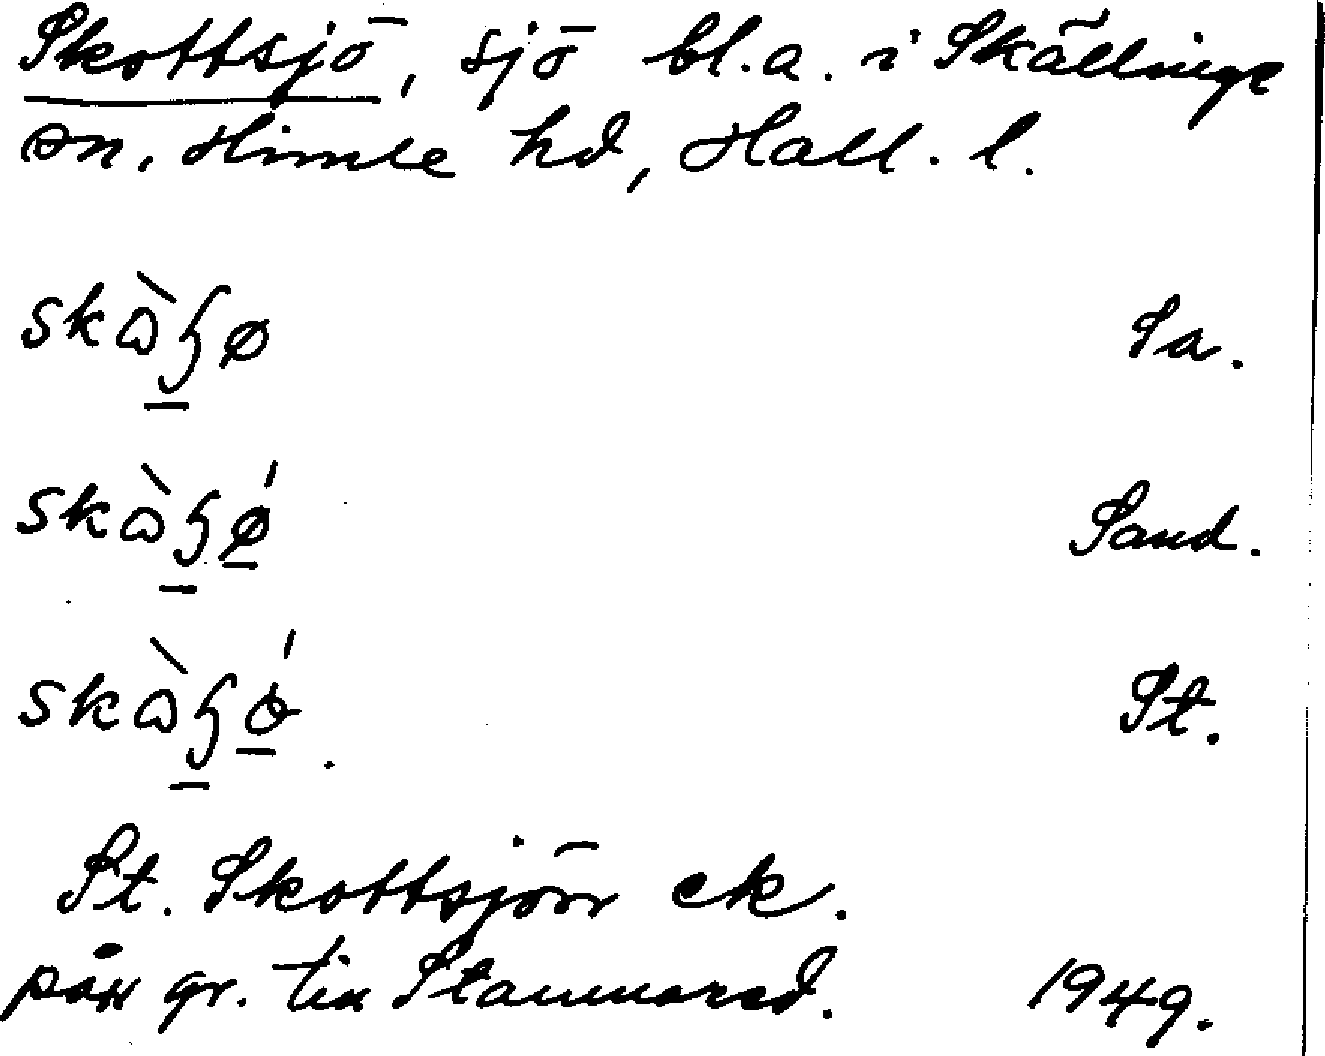 Skottsjö, sjö bl.a. i Skällinge
sn. Himle hd, Hall. l.
Sa.
Sand.
St.
St. Skottsjön ek.
på gr. till Stamnared. 1949.